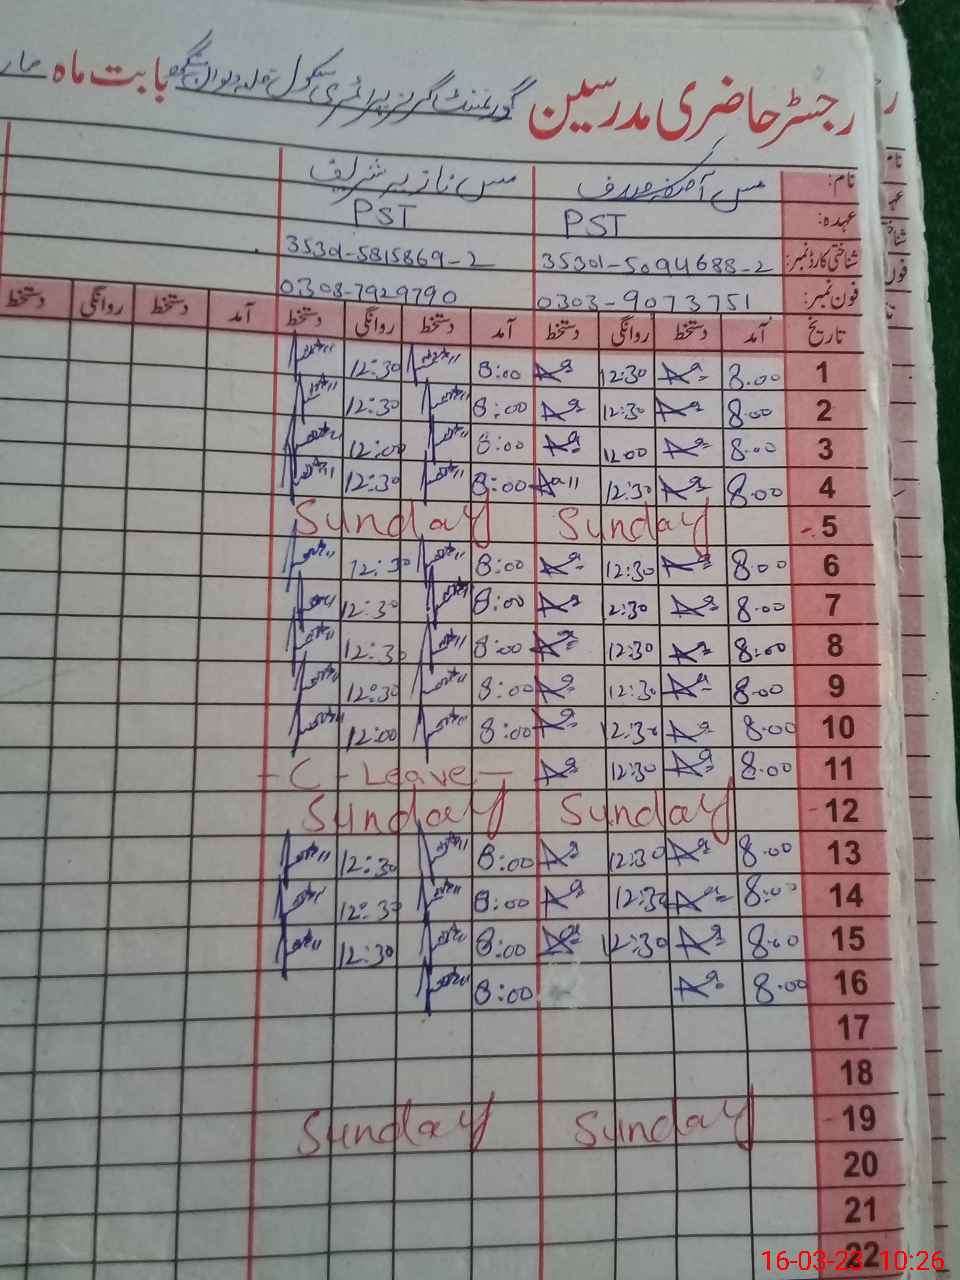 رجسٹر حاضری مدرسین گورنمنٹ گرلز پرائمری سکول قلعہ دیوان سنگھ بابت ماہ مار
نام: مس آمنہ صدف مس نازیہ شریف
عہدہ: PST PST
شناختی کارڈ نمبر: 35301-5094688-2 35301-5815869-2
فون نمبر: 0303-9073751 0308-7929790
تاریخ آمد دستخط روانگی دستخط آمد دستخط روانگی دستخط آمد دستخط روانگی دستخط
1 8.00 12:30 8:00 12:30
2 8.00 12:30 8:00 12:30
3 8.00 12:00 8:00 12:00
4 8.00 12:30 8:00 12:30
5 Sunday Sunday
6 8.00 12:30 8:00 12:30
7 8.00 12:30 8:00 12:30
8 8:00 12:30 8:00 12:30
9 8.00 12:30 8:00 12:30
10 8.00 12:30 8:00 12:00
11 8.00 12:30 - C - Leave -
12 Sunday Sunday
13 8.00 12:30 8:00 12:30
14 8:00 12:30 8:00 12:30
15 8.00 12:30 8:00 12:30
16 8.00 8:00
17
18
19 Sunday Sunday
20
21
22
16-03-23 10:26